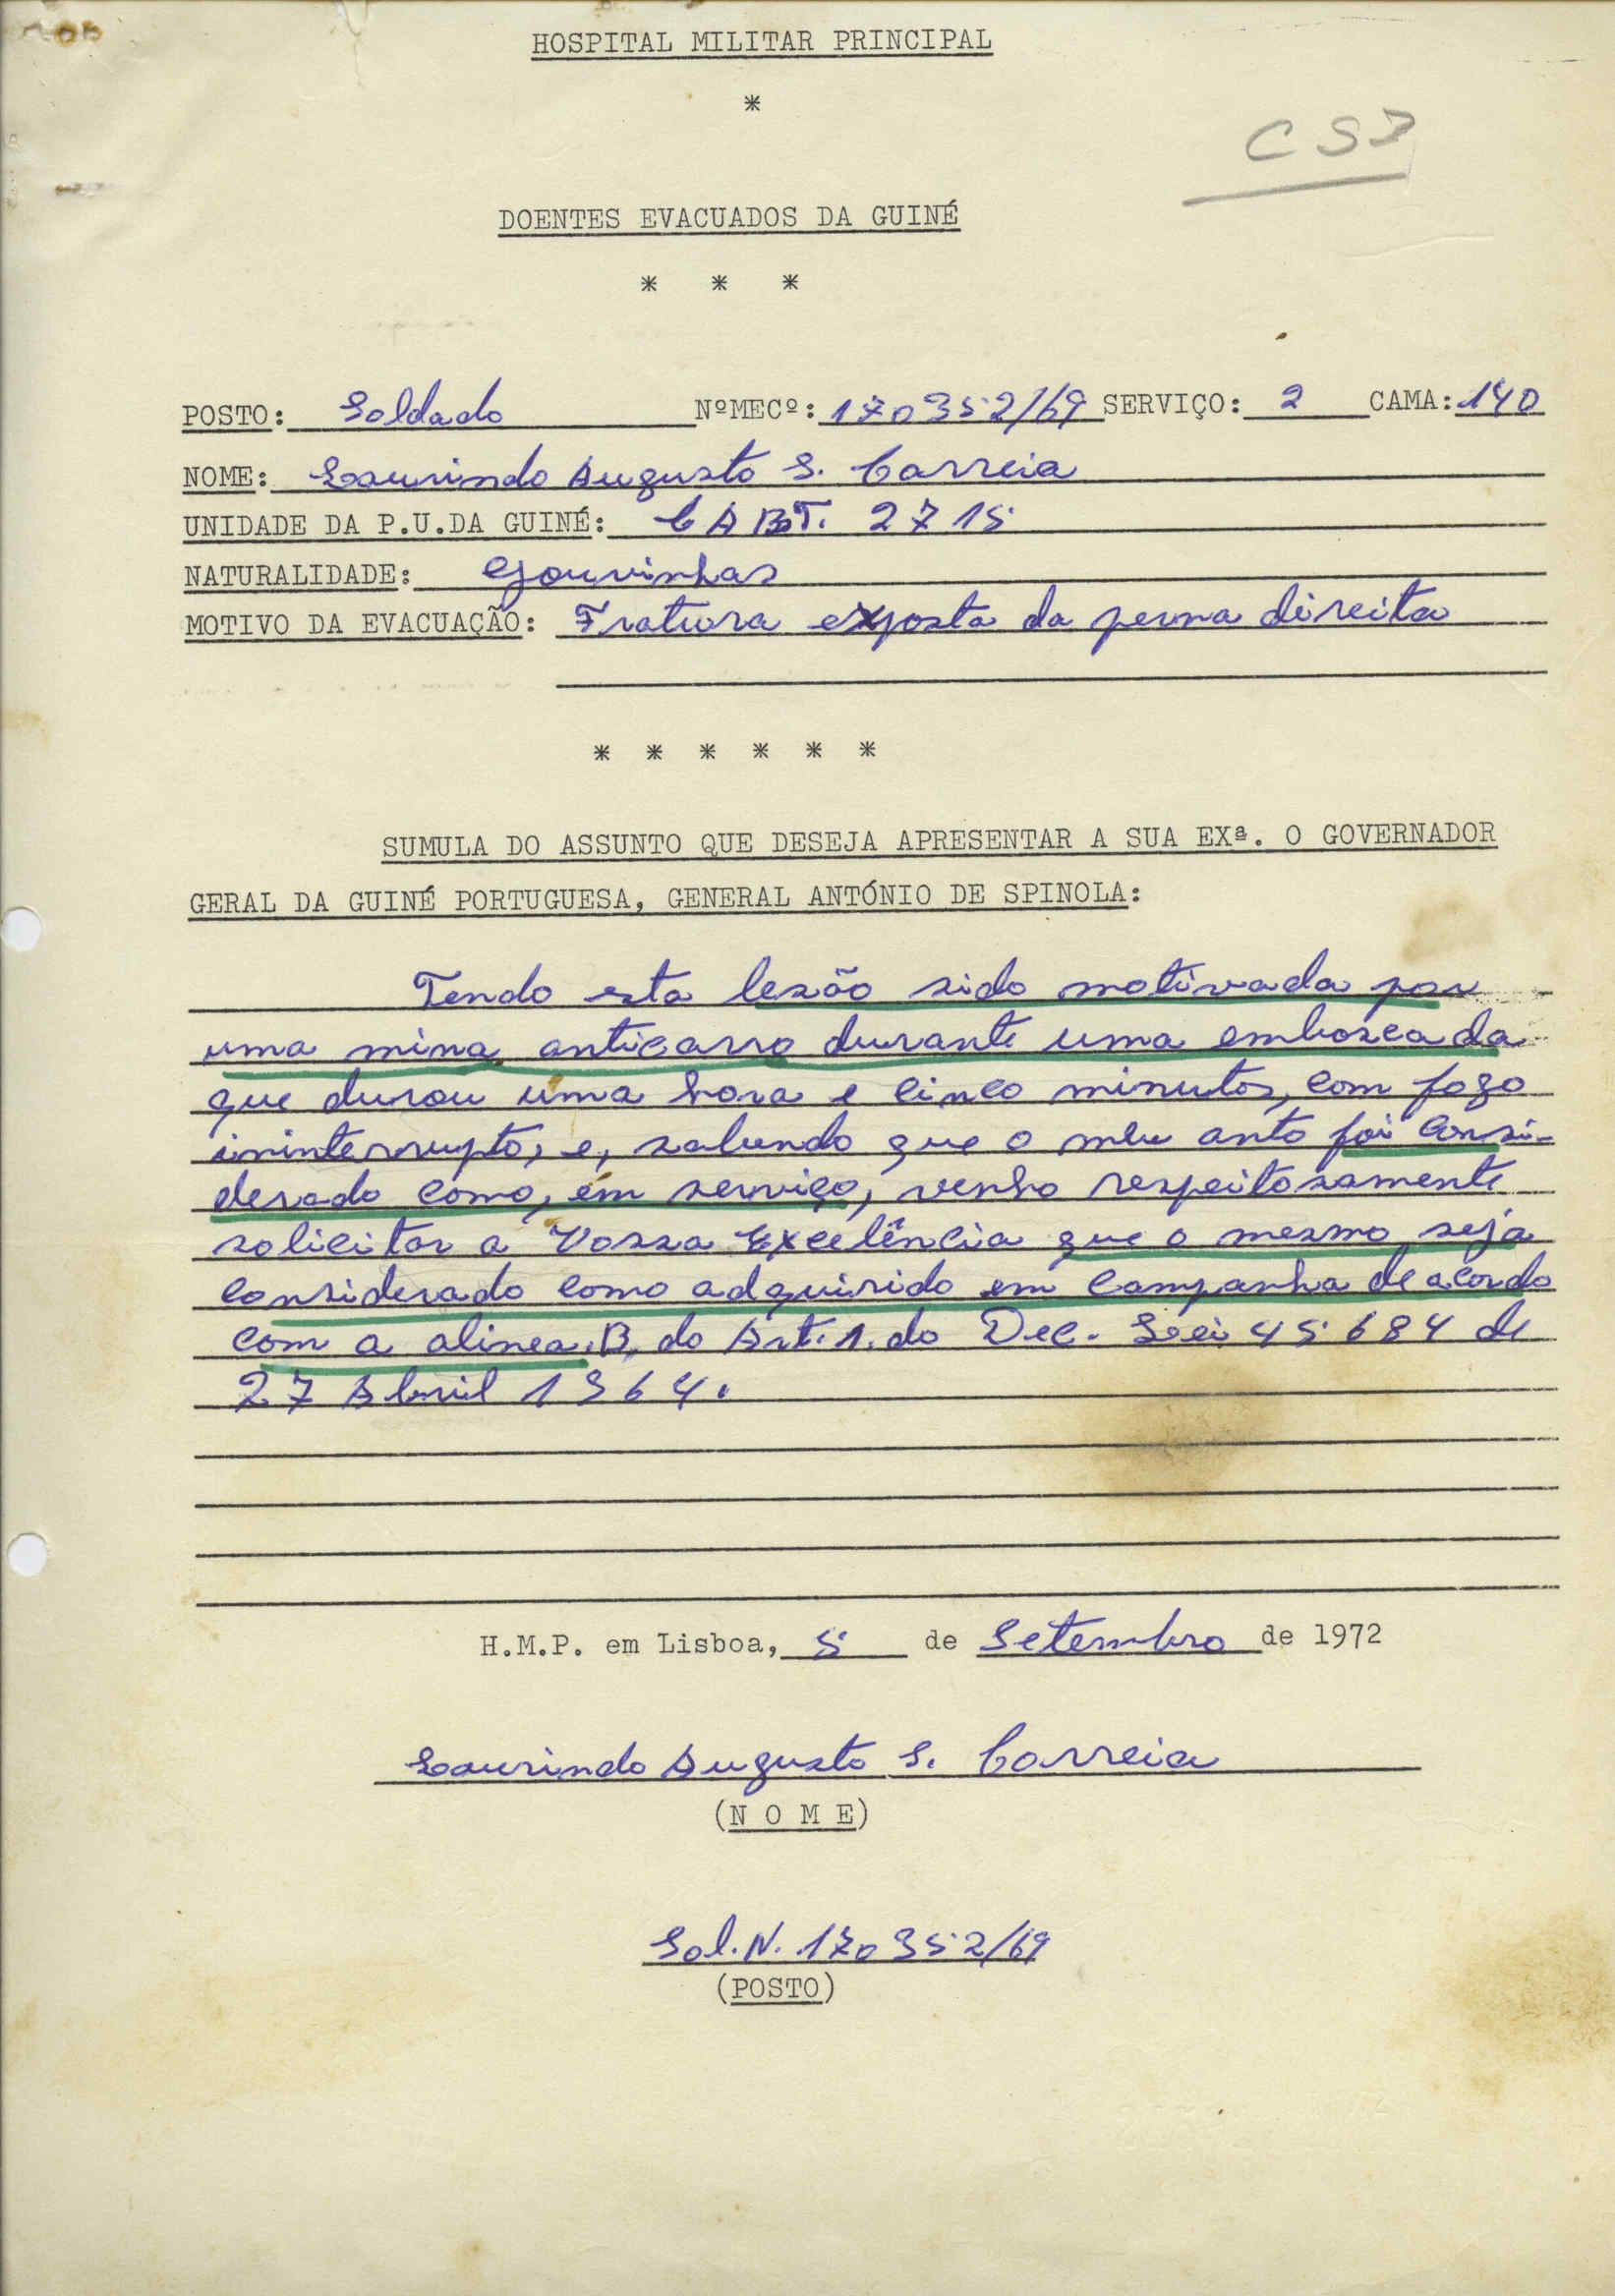 HOSPITAL MILITAR PRINCIPAL
*
CSJ
DOENTES EVACUADOS DA GUINÉ
* * *
POSTO: Soldado NºMECº: 170352/69 SERVIÇO: 2 CAMA: 140
NOME: Laurindo Augusto S. Correia
UNIDADE DA P.U.DA GUINÉ: C A BaT. 2715
NATURALIDADE: Gouvinhas
MOTIVO DA EVACUAÇÃO: Fratura exposta da perna direita
* * * * * *
SUMULA DO ASSUNTO QUE DESEJA APRESENTAR A SUA EXª. O GOVERNADOR
GERAL DA GUINÉ PORTUGUESA, GENERAL ANTÓNIO DE SPINOLA:
Tendo esta lesão sido motivada por
uma mina anticarro durante uma emboscada
que durou uma hora e cinco minutos, com fogo
ininterrupto, e, sabendo que o meu anto foi consi-
derado como, em serviço, venho respeitosamente
solicitar a Vossa Excelência que o mesmo seja
considerado como adquirido em campanha de acordo
com a alinea B, do Art. 1. do Dec. Lei 45684 de
27 Abril 1964.
H.M.P. em Lisboa, 5 de Setembro de 1972
Laurindo Augusto S. Correia
(N O M E)
Sol. N. 170352/69
(POSTO)